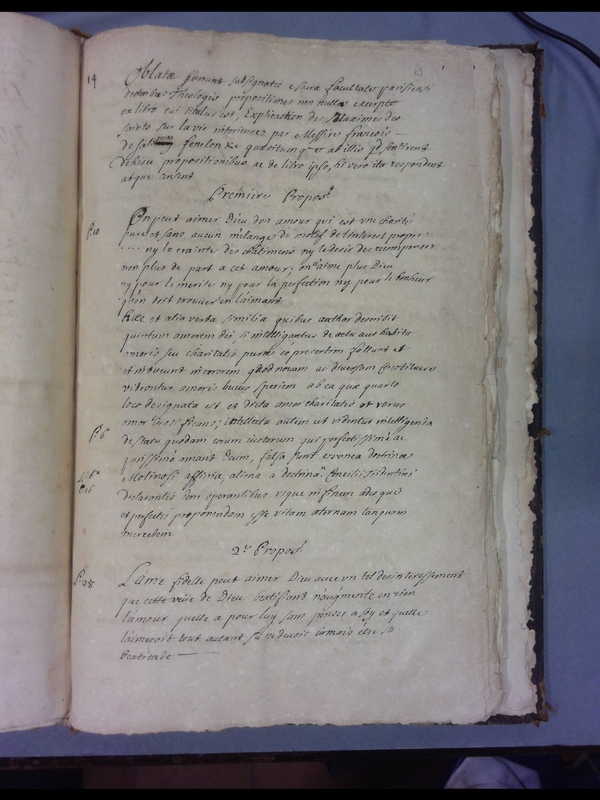 14
Oblatæ fuerunt subsignatis e sacra facultate parisiensi
doctoribus Theologis propositiones non nullæ excerptæ
ex libro cui titulus est, Explication des Maximes des
saints sur la vie interieure par Messire francois
de fenelon &c quæsitum ab illis quid sentirent
propositionibus ac de libro ipso, hi vero ita respondent
atque censent
Premiere Propos.
p. 10
On peut aimer Dieu d'un amour qui est une charité
pure et sans aucun mélange de motif de l'interest propre
.... ny la crainte des châtimens ny le desir des recompenses
non plus de part a cet amour, on n'aime plus Dieu
ny pour le merite ny pour la perfection ny pour le bonheur
qu'on doit trouver en l'aimant
Hæc et alia verba similia quibus author describit
quintum amorem dei, si intelligantur de actu aut habitu
amoris seu charitatis puræ eo præsertim fallunt et
et inducunt in errorem quod novam ac diversam constituere
videntur amoris huius speciem ab ea quæ quarto
loco designata est et dicta amor charitatis et verus
amor intellecta autem ut videntur intelligenda
p. 6
de statu quodam eorum justorum qui perfectissime ac
purissime amant Deum, falsa sunt erronea doctrinæ
Molinosi affinia, aliena a doctrina Concilii Tridentini
s. 6ª
c. 16
declarantis bene operantibus usque in finem adeoque
et perfectis proponendam esse vitam æternam tanquam
mercedem
2.e Propos.
p. 28
L'ame fidelle peut aimer Dieu avec un tel desinteressement
que cette veüe de Dieu beatifiant n'augmente en rien
l'amour quelle a pour luy sans penser a soy et quelle
l'aimeroit tout autant s'il ne devoit jamais être sa
beatitude